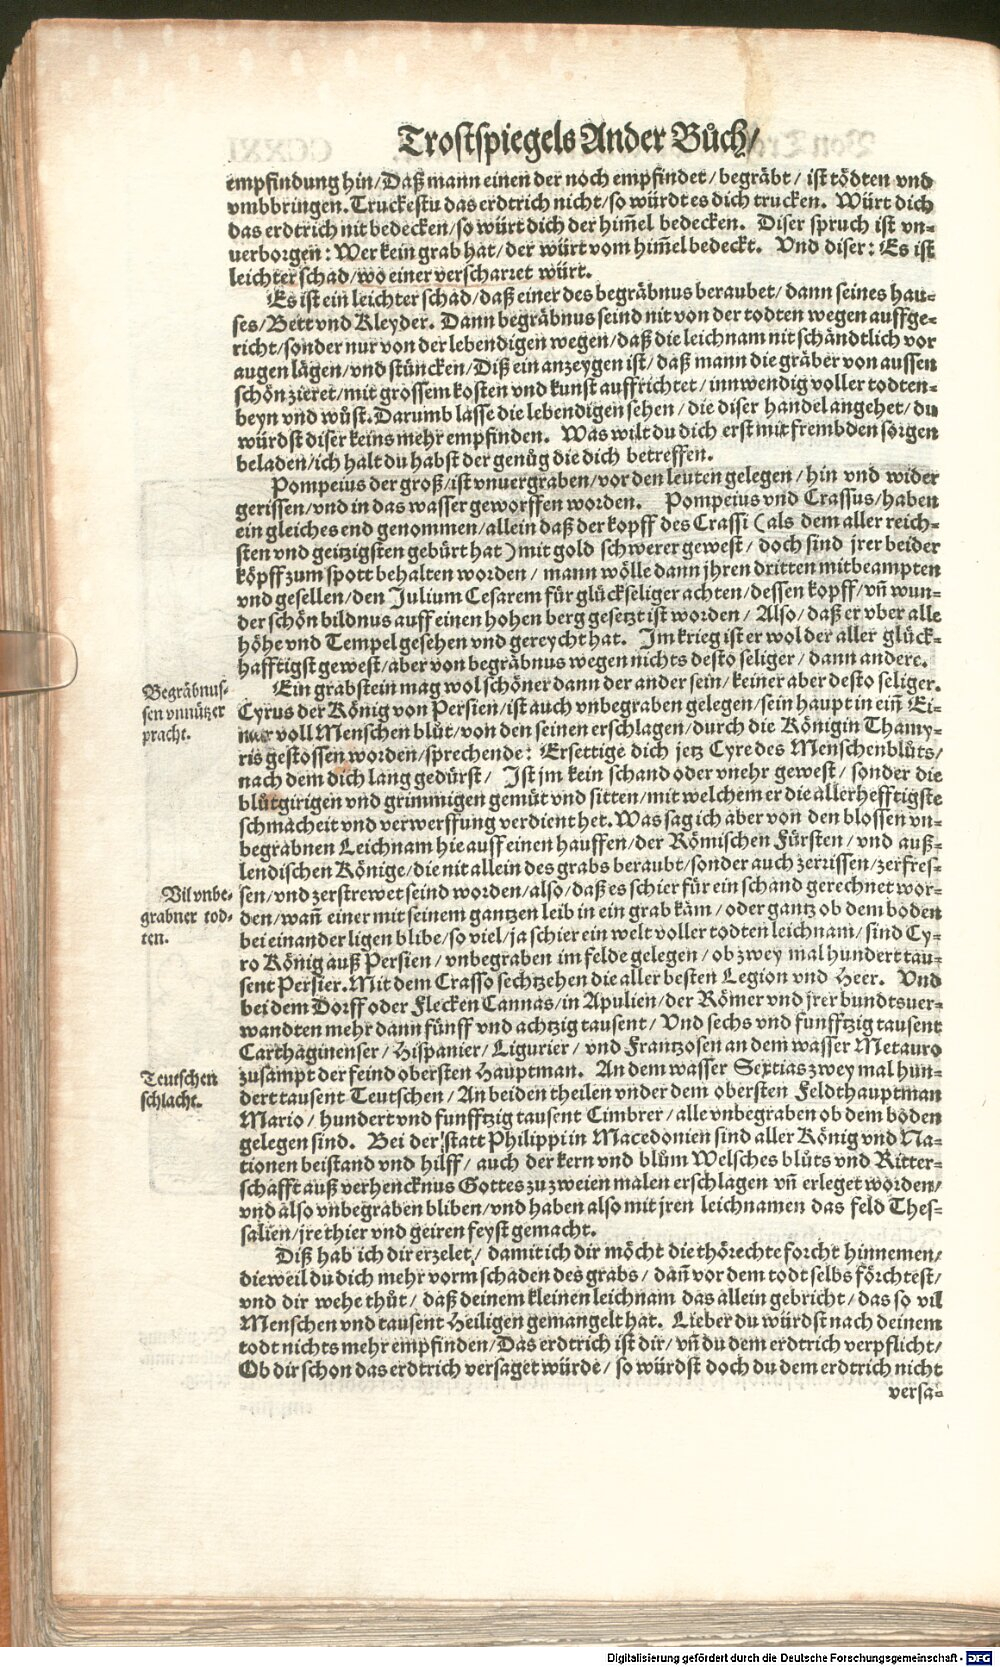 Trostspiegels Ander Bůch/
empfindung hin/Daß mann einen der noch empfindet/begräbt/ ist tödten vnd
vmbbringen. Truckestu das erdtrich nicht/so würdt es dich trucken. Würt dich
das erdtrich nit bedecken/so würt dich der him̃el bedecken. Diser spruch ist vn-
uerborgen: Wer kein grab hat/der würt vom him̃el bedeckt. Vnd diser: Es ist
leichter schad/wo einer verscharret würt.
Es ist ein leichter schad/daß einer des begräbnus beraubet/dann seines hau-
ses/Bett vnd Kleyder. Dann begräbnus seind nit von der todten wegen auffge-
richt/sonder nur von der lebendigen wegen/daß die leichnam nit schändtlich vor
augen lägen/vnd stüncken/Diß ein anzeygen ist/daß mann die gräber von aussen
schön zieret/mit grossem kosten vnd kunst auffrichtet/innwendig voller todten-
beyn vnd wůst. Darumb lasse die lebendigen sehen/die diser handel angehet/du
würdst diser keins mehr empfinden. Was wilt du dich erst mit frembden sorgen
beladen/ich halt du habst der genůg die dich betreffen.
Pompeius der groß/ist vnuergraben/vor den leuten gelegen/hin vnd wider
gerissen/vnd in das wasser geworffen worden. Pompeius vnd Crassus/haben
ein gleiches end genommen/allein daß der kopff des Crassi (als dem aller reich-
sten vnd geitzigsten gebürt hat) mit gold schwerer gewest/doch sind jrer beider
köpff zum spott behalten worden/mann wölle dann jhren dritten mitbeampten
vnd gesellen/den Julium Cesarem für glückseliger achten/dessen kopff/vñ wun-
der schön bildnus auff einen hohen berg gesetzt ist worden/Also/daß er vber alle
höhe vnd Tempel gesehen vnd gereycht hat. Im krieg ist er wol der aller glück-
hafftigst gewest/aber von begräbnus wegen nichts desto seliger/dann andere.
Begräbnus-
sen vnnützer
pracht.
Ein grabstein mag wol schöner dann der ander sein/keiner aber desto seliger.
Cyrus der König von Persien/ist auch vnbegraben gelegen/sein haupt in ein̄ Ei-
mer voll Menschen blůt/von den seinen erschlagen/durch die Königin Thamy-
ris gestossen worden/sprechende: Ersettige dich jetz Cyre des Menschenblůts/
nach dem dich lang gedürst/ Ist jm kein schand oder vnehr gewest/sonder die
blůtgirigen vnd grimmigen gemüt vnd sitten/mit welchem er die allerhefftigste
schmacheit vnd verwerffung verdient het. Was sag ich aber von den blossen vn-
begrabnen Leichnam hie auff einen hauffen/der Römischen Fürsten/vnd auß-
lendischen Könige/die nit allein des grabs beraubt/sonder auch zerrissen/zerfres-
Vil vnbe-
grabner tod-
ten.
sen/vnd zerstrewet seind worden/also/daß es schier für ein schand gerechnet wor-
den/wañ einer mit seinem gantzen leib in ein grab käm/oder gantz ob dem boden
bei einander ligen blibe/so viel/ja schier ein welt voller todten leichnam/sind Cy-
ro König auß Persien/vnbegraben im felde gelegen/ob zwey mal hundert tau-
sent Persier. Mit dem Crasso sechtzehen die aller besten Legion vnd Heer. Vnd
bei dem Dorff oder Flecken Cannas/in Apulien/der Römer vnd jrer bundtsuer-
wandten mehr dann fünff vnd achtzig tausent/Vnd sechs vnd funfftzig tausent
Carthaginenser/Hispanier/Ligurier/vnd Frantzosen an dem wasser Metauro
Teutschen
schlacht.
zusampt der feind obersten Hauptman. An dem wasser Sextias zwey mal hun-
dert tausent Teutschen/An beiden theilen vnder dem obersten Feldthauptman
Mario/hundert vnd funfftzig tausent Cimbrer/alle vnbegraben ob dem boden
gelegen sind. Bei der statt Philippi in Macedonien sind aller König vnd Na-
tionen beistand vnd hilff/auch der kern vnd blům Welsches blůts vnd Ritter-
schafft auß verhencknus Gottes zu zweien malen erschlagen vñ erleget worden/
vnd also vnbegraben bliben/vnd haben also mit jren leichnamen das feld Thes-
salien/jre thier vnd geiren feyst gemacht.
Diß hab ich dir erzelet/damit ich dir möcht die thörechte forcht hinnemen/
dieweil du dich mehr vorm schaden des grabs/dañ vor dem todt selbs förchtest/
vnd dir wehe thůt/daß deinem kleinen leichnam das allein gebricht/das so vil
Menschen vnd tausent Heiligen gemangelt hat. Lieber du würdst nach deinem
todt nichts mehr empfinden/Das erdtrich ist dir/vñ du dem erdtrich verpflicht/
Ob dir schon das erdtrich versaget würde/so würdst doch du dem erdtrich nicht
versa-
Digitalisierung gefördert durch die Deutsche Forschungsgemeinschaft - DFG